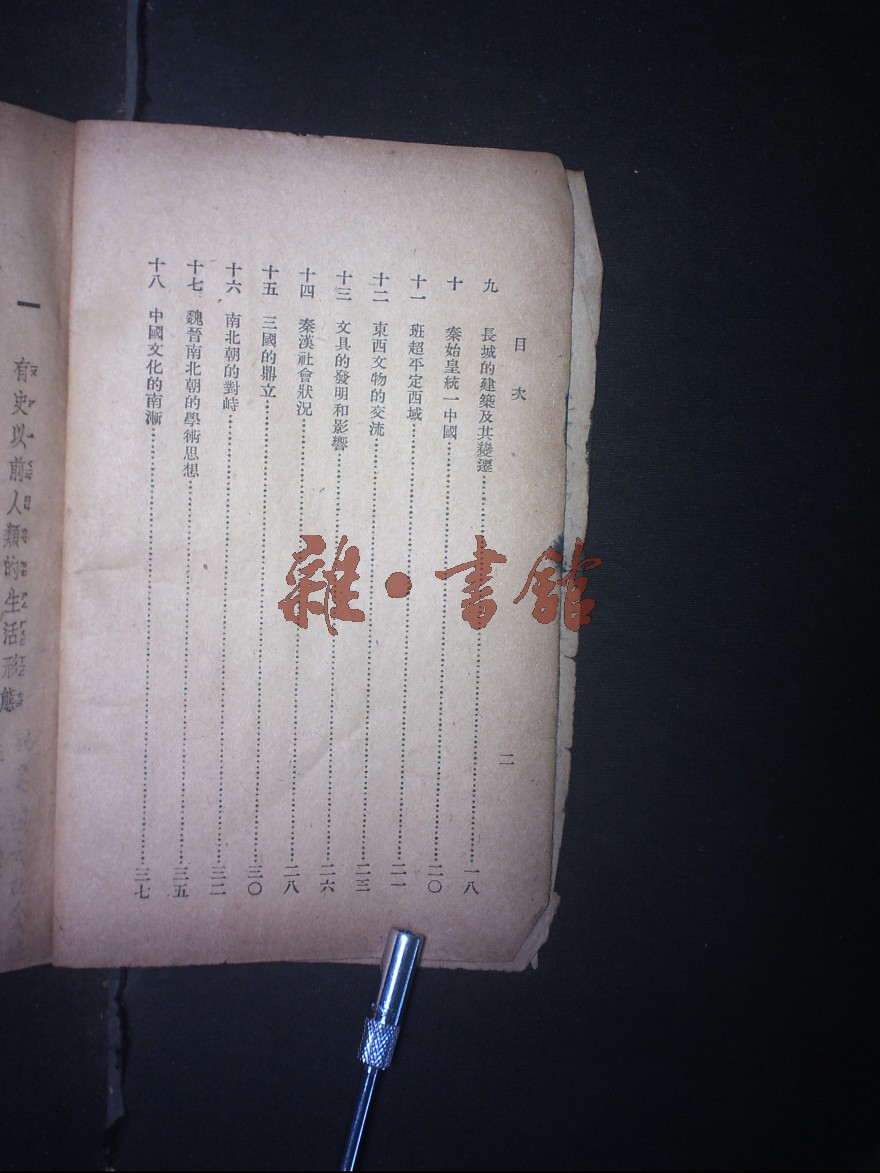 目次
二
九 長城的建築及其變遷……一八
十 秦始皇統一中國……二〇
十一 班超平定西域……二一
十二 東西文物的交流……二三
十三 文具的發明和影響……二六
十四 秦漢社會狀況……二八
十五 三國的鼎立……三〇
十六 南北朝的對峙……三二
十七 魏晉南北朝的學術思想……三五
十八 中國文化的南漸……三七
一 有史以前人類的生活形態
雜·書館